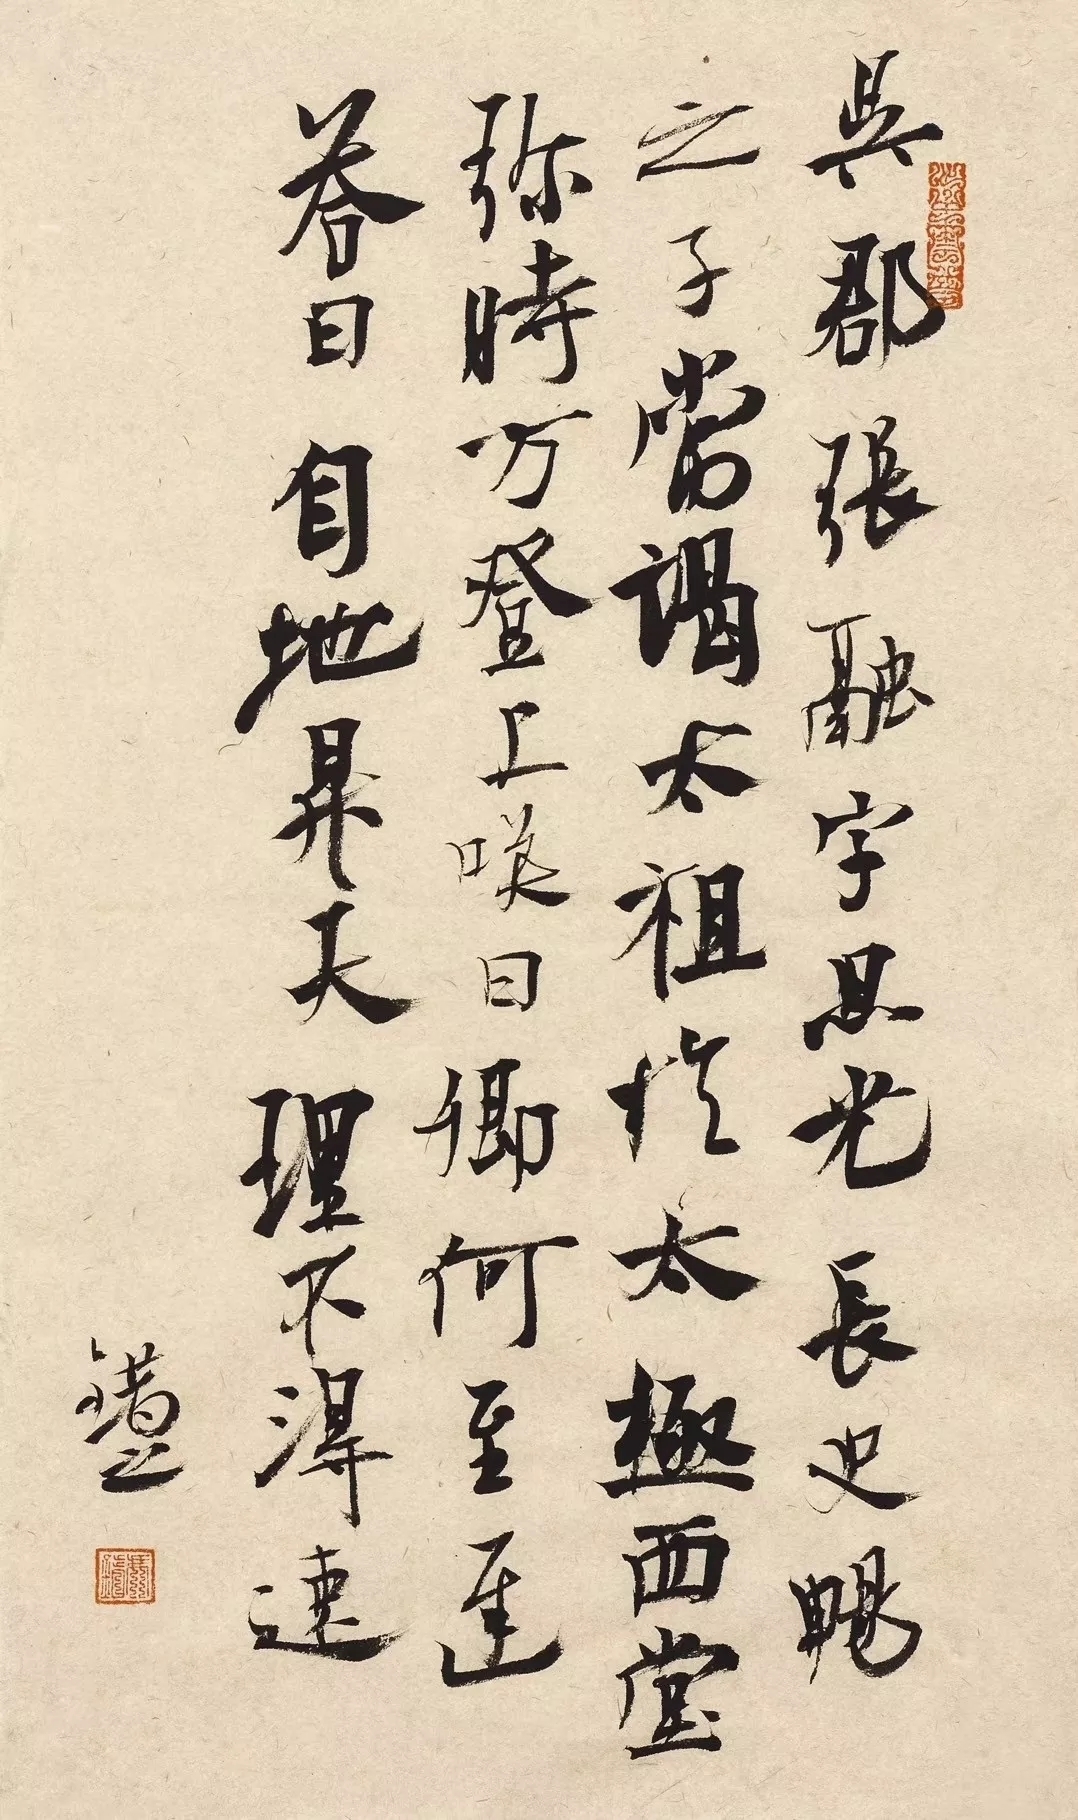 吳郡張融字思光長史暢
之子嘗謁太祖扵太極西堂
弥時方登上咲曰卿何至遲
荅曰自地昇天理不得速